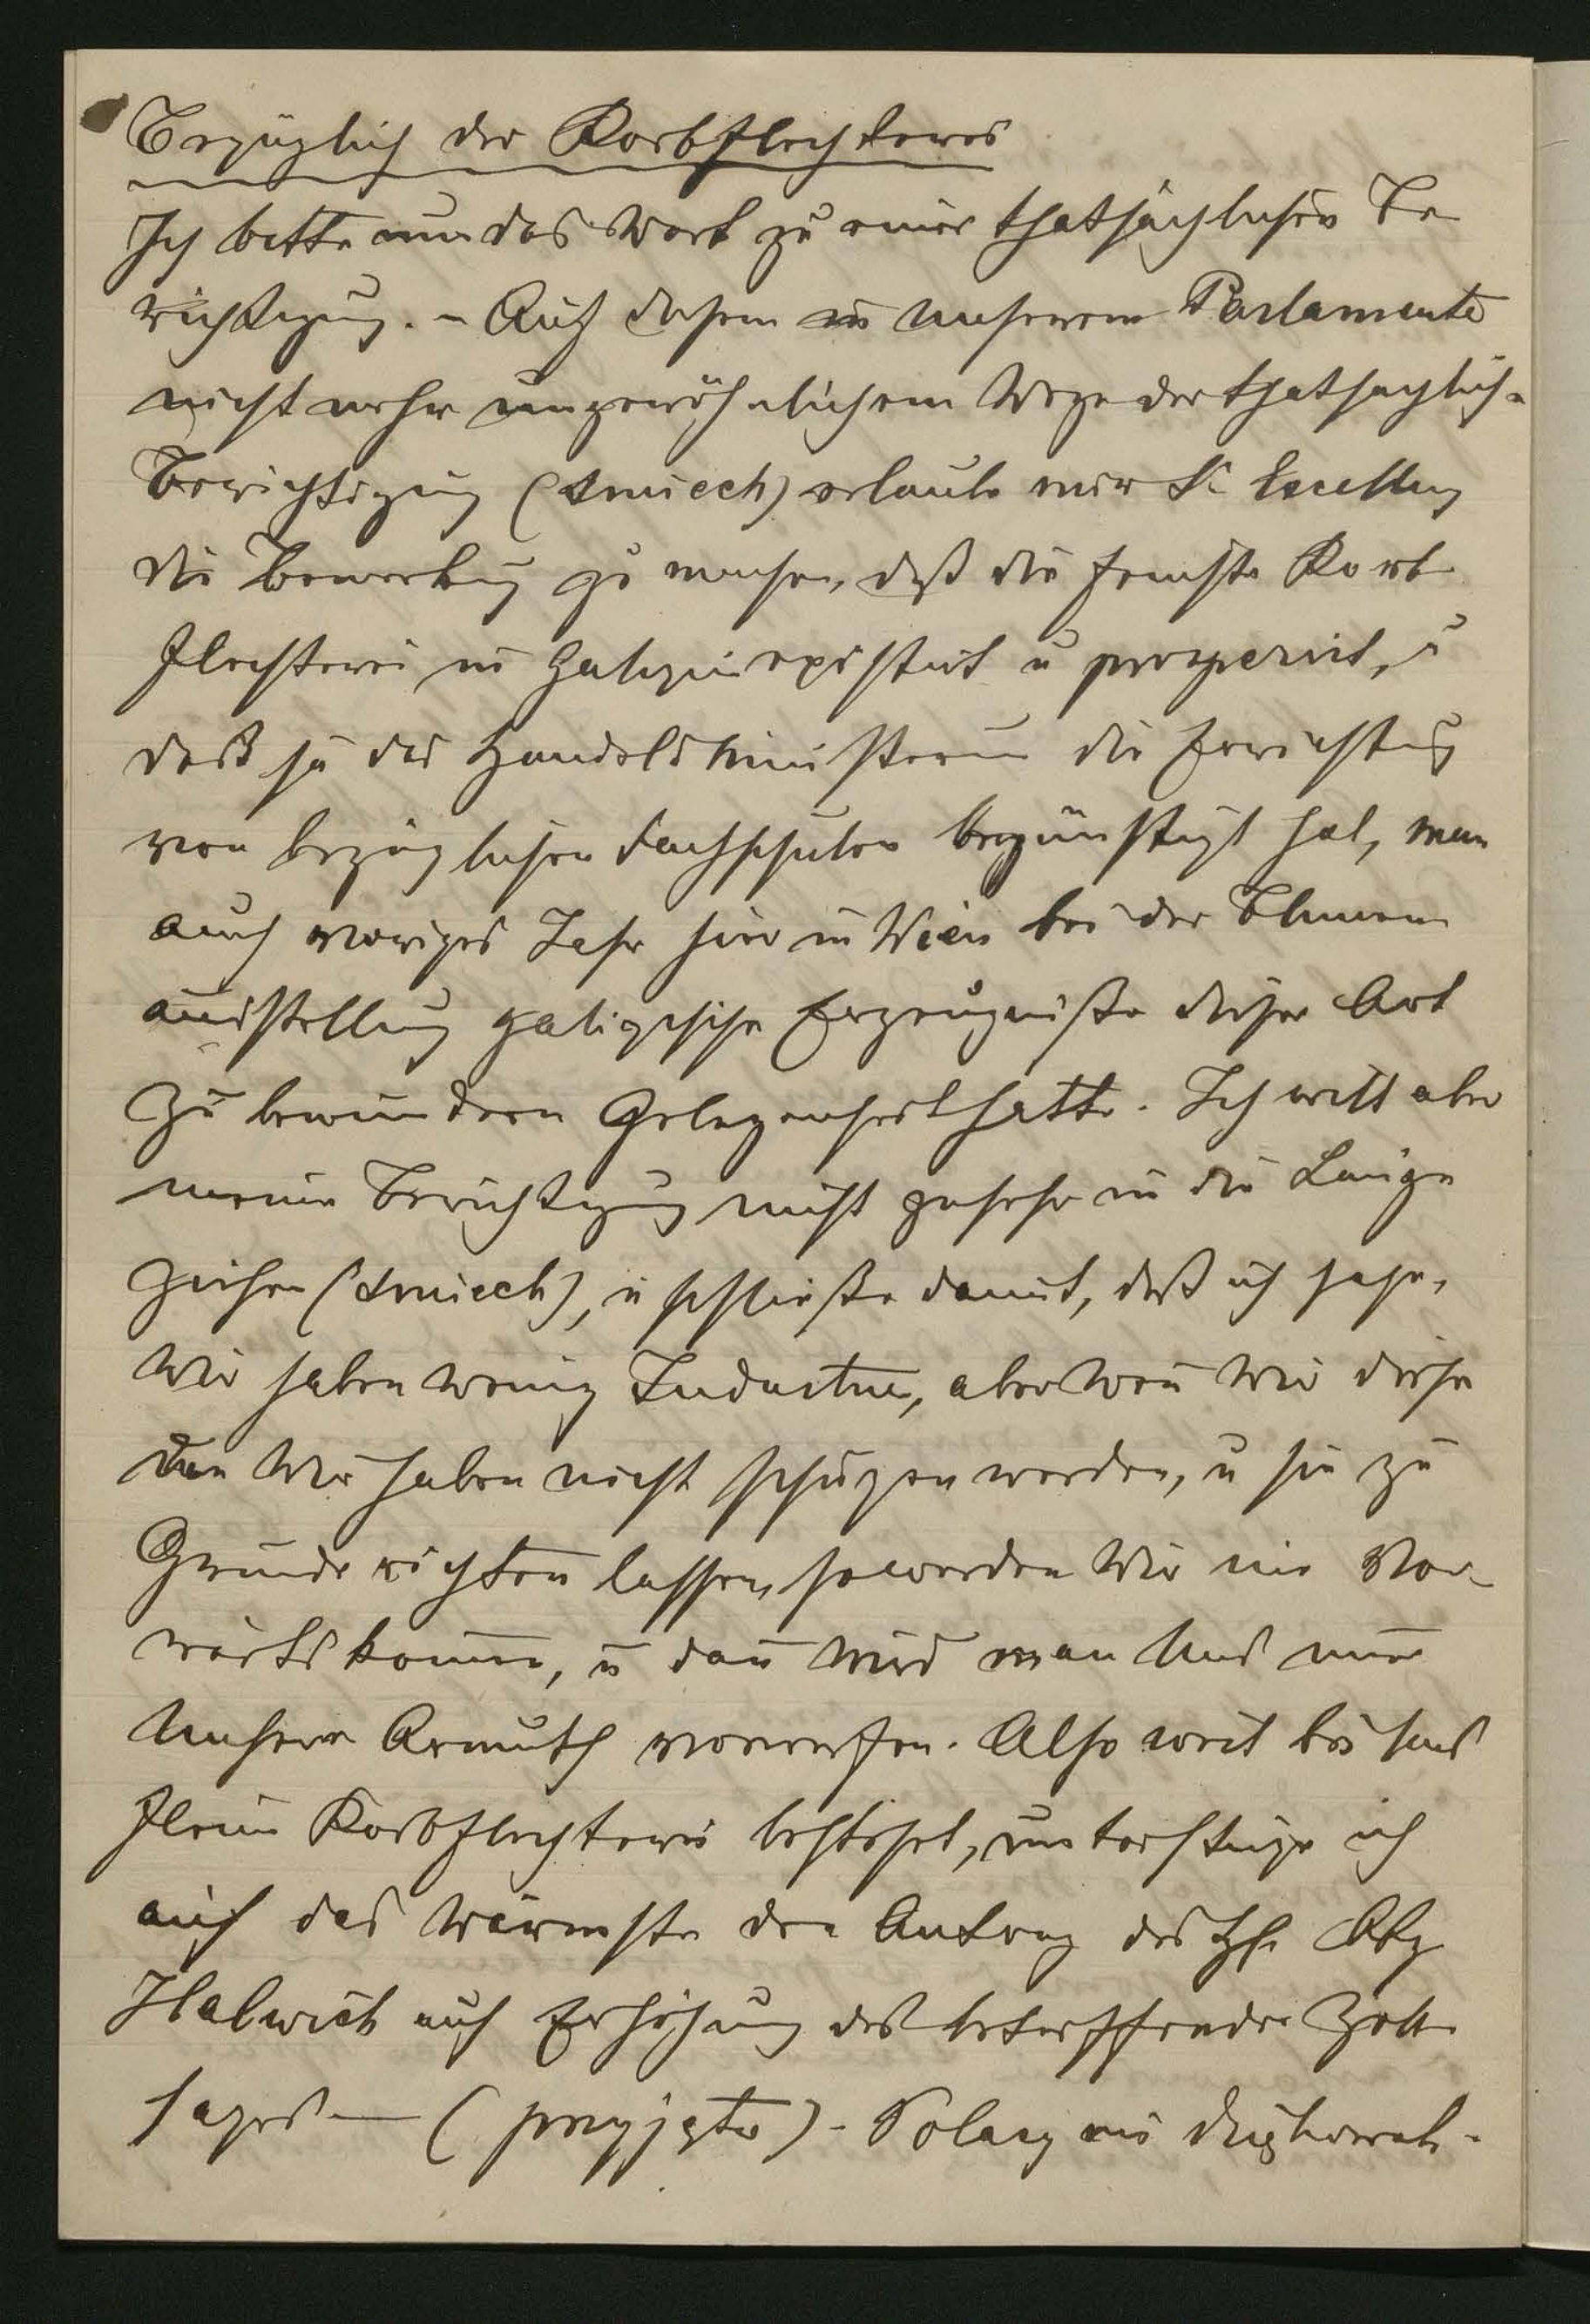 Bezüglich der Korbflechterei
Ich bitte um das Wort zu einer thatsächlichen Be
richtigung. – Auf diesem in unserem Parlamente
nicht mehr ungewöhnlichem Wege der thatsächlich-
Berichtigung (śmiech) erlaube mir Sr Excellenz
die Bemerkung zu machen, daß die feinste Korb
flechterei in Galizien existirt u prosperirt, u
daß ja das Handelsministerium die Errichtung
von bezüglichen Fachschulen begünstigt hat, man
auch voriges Jahr hier in Wien bei der Blumen
ausstellung galizische Erzeugniße dieser Art
zu bewundern Gelegenheit hatte. Ich will aber
meine Berichtigung nicht zusehr in die Länge
ziehen (śmiech), u schließe damit, daß ich sage,
Wir haben wenig Industrie, aber wen̄ Wir diese
die Wir haben nicht schützen werden, u sie zu
Grunde richten lassen, so werden Wir nie Vor-
wärts kom̄en, u dan̄ wird man Uns nur
Unsere Armuth vorwerfen. Also weit bei uns
feine Korbflechterei besteht, unterstütze ich
auf das Wärmste den Antrag des H. Abg
Halwich auf Erhöhung des betreffenden Zoll
satzes — (przyjęto) – Polacy mi dziękowali.